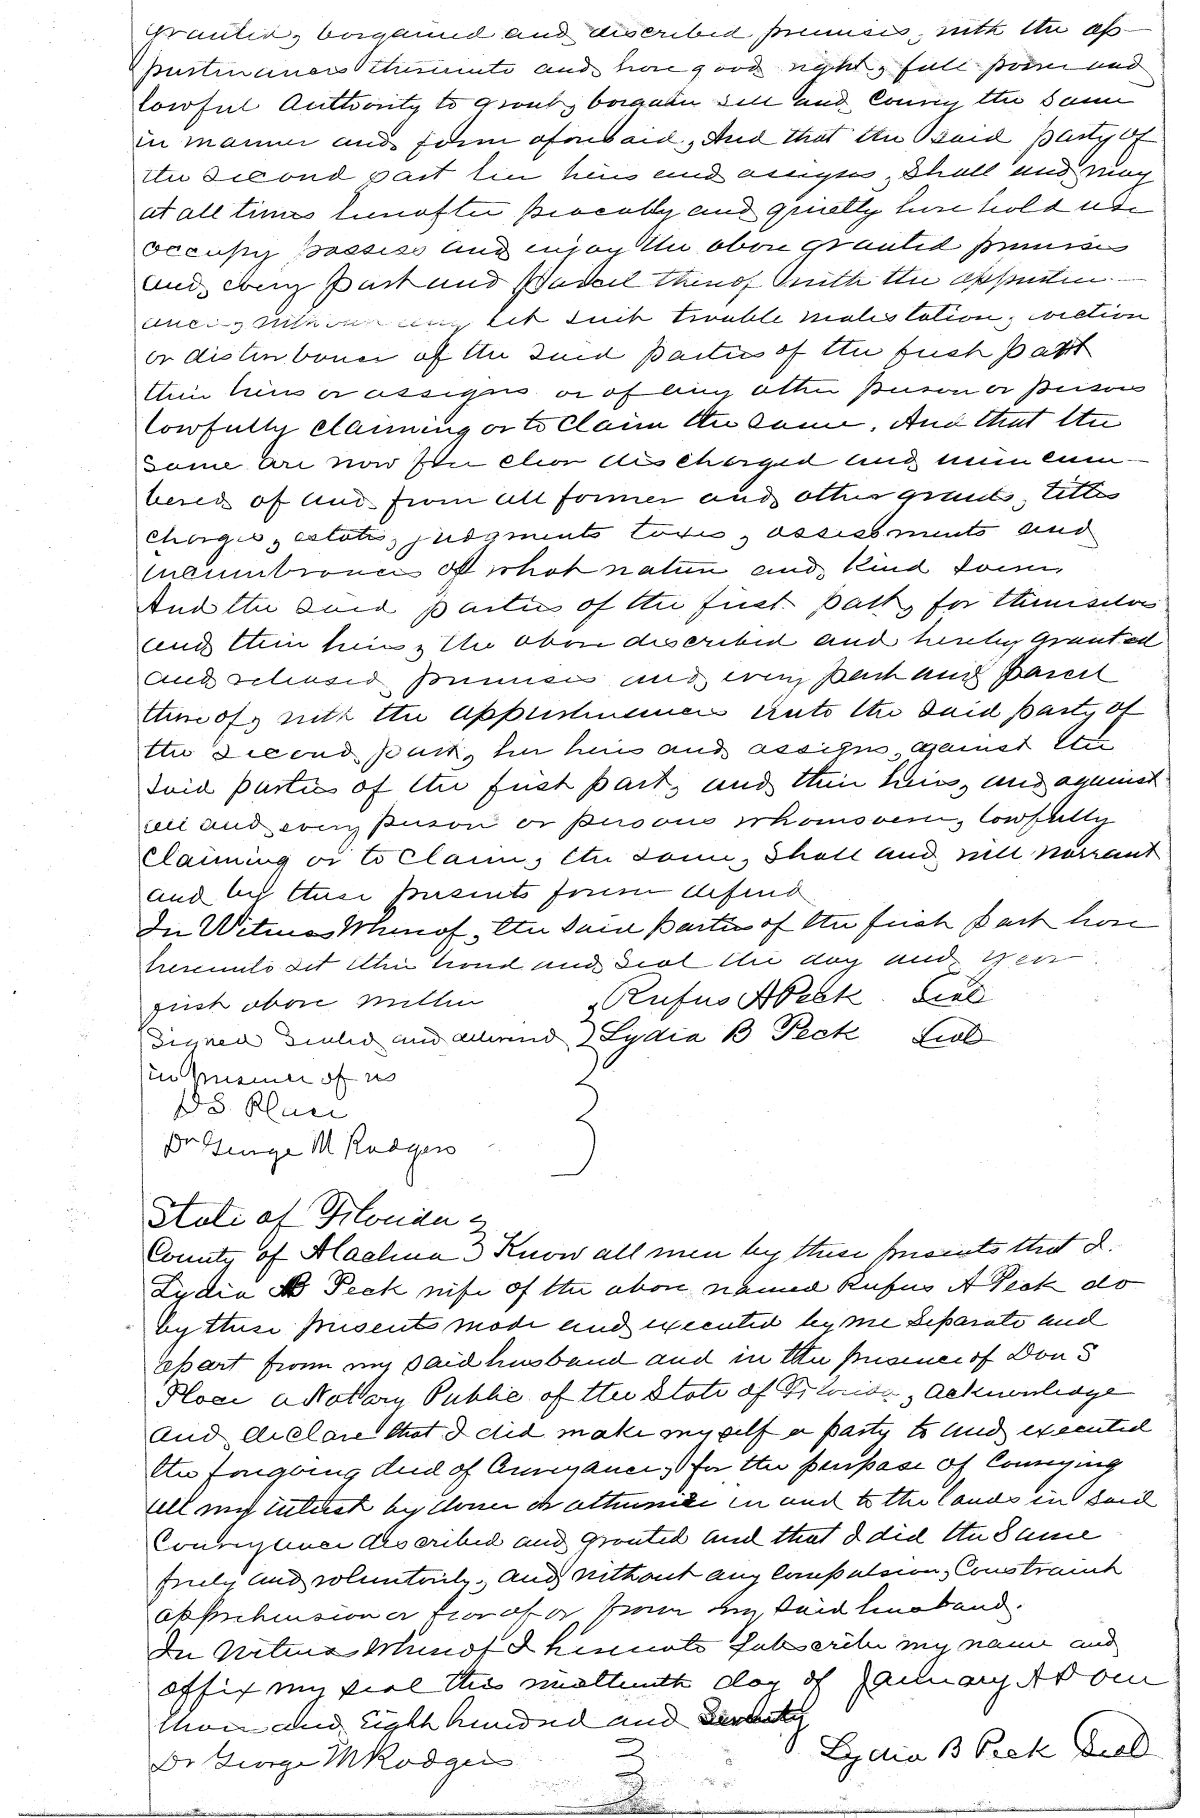 granted, bargained and discribed premises, with the ap-
purtenances thereunto and have good right, full power and
lawful Authority to grant, bargain sell and Convey the Same
in manner and form aforesaid, And that the Said party of
the Second part her heirs and assigns, Shall and may
at all times hereafter peaceably and quietly have hold use
occupy possess and enjoy the above granted premises
and every part and Parcel thereof with the appurten-
ances, without any let suit trouble molestation, eviction
or disturbance of the Said parties of the first part
their heirs or assigns or of any other person or persons
lawfully claiming or to Claim the Same. And that the
Same are now free clear discharged and unincum-
bered of and from all former and other grants, titles
charges, estates, judgments taxes, assessments and
incumbrances of what nature and Kind Soever,
And the Said parties of the first part, for themselves
and their heirs, the above discribed and hereby granted
and released premises and every part and parcel
thereof, with the appurtenances unto the Said party of
the Second part, her heirs and assigns, against the
Said parties of the first part, and their heirs, and against
all and every person or persons whomsoever, lawfully
Claiming or to Claim, the Same, Shall and will Warrant
and by these presents forever defend
In Witness Whereof, the Said parties of the first part have
hereunto Set their hand and Seal the day and year
first above written Rufus A Peck Seal
Signed Sealed and delivered } Lydia B Peck Seal
in presence of us
D S Place
Dr George M Rodgers
State of Florida }
County of Alachua } Know all men by these presents that I.
Lydia B Peck wife of the above named Rufus A Peck do
by these presents made and executed by me Separate and
apart from my said husband and in the presence of Don S
Place a Notary Public of the State of Florida, acknowledge
and declare that I did make myself a party to and executed
the foregoing deed of Conveyance, for the purpose of Conveying
all my interest by dower or otherwise in and to the lands in Said
Conveyance described and granted and that I did the Same
freely and voluntarily, and without any Compulsion, Constraint
apprehension or fear of or from my Said husband.
In Witness Whereof I hereunto Subscribe my name and
affix my seal this nineteenth day of January A D one
thousand Eight hundred and Seventy
Dr George M Rodgers } Lydia B Peck Seal